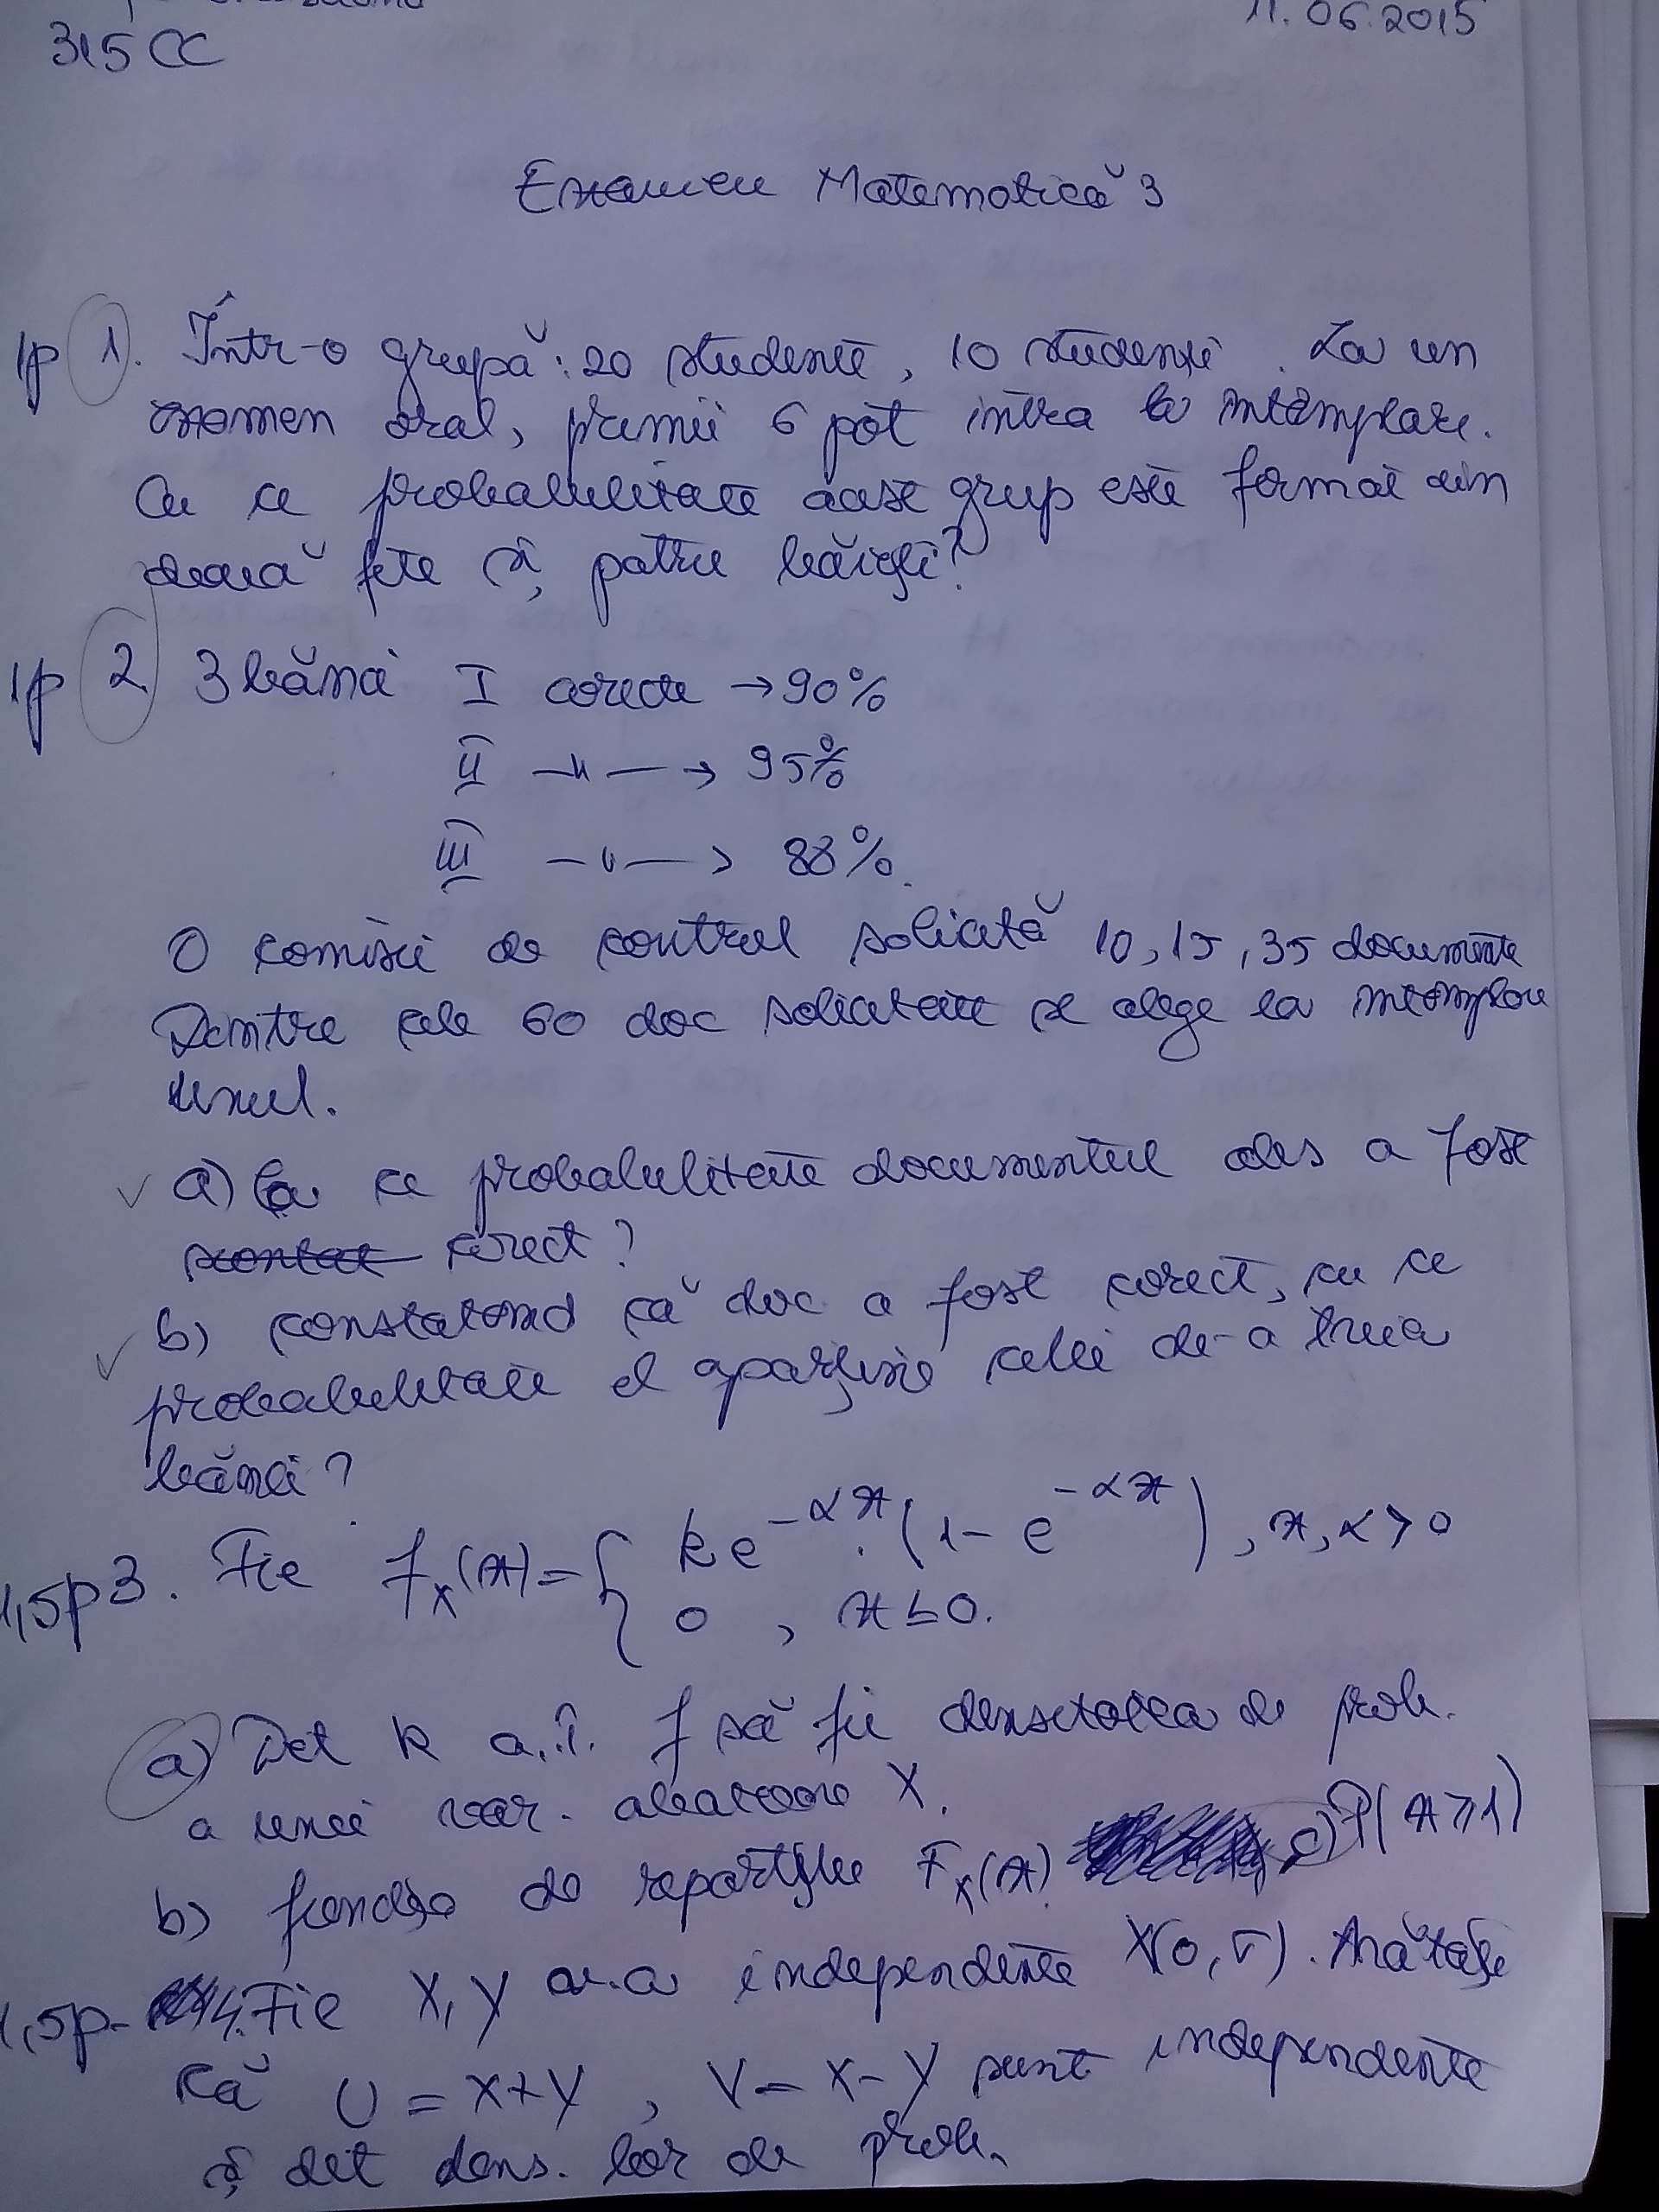 315 CC
11.06.2015
Examen Matematică 3
1p 1. Într-o grupă: 20 studente, 10 studenți. La un
examen oral, primii 6 pot intra la întâmplare.
Cu ce probabilitate acest grup este format din
două fete și patru băieți?
1p 2 3 bănci I corecte → 90%
II —"—→ 95%
III —"—→ 88%.
O comisie de control solicită 10, 15, 35 documente
Dintre cele 60 doc solicitate se alege la întâmplare
unul.
a) Cu ce probabilitate documentul ales a fost
corect?
b) constatând că doc a fost corect, cu ce
probabilitate el aparține celei de-a treia
bănci?
1,5p 3. Fie f_X(x) = { k e^{-αx} · (1 - e^{-αx}), x, α > 0
0, x ≤ 0.
a) Det k a.î. f să fie densitatea de prob.
a unei var. aleatoare X.
b) funcția de repartiție F_X(x) c) P(x ≥ 1)
1,5p- 4. Fie X, Y v.a independente N(0, σ). Arătați
că U = X+Y, V = X-Y sunt independente
și det dens. lor de prob.